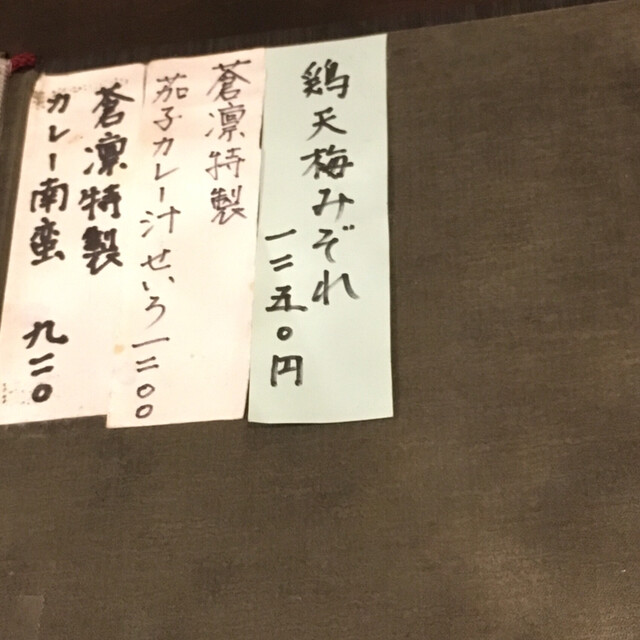 鶏天梅みぞれ
一二五〇円
蒼凛特製
茄子カレー汁せいろ一二〇〇
蒼凛特製
カレー南蛮 九二〇